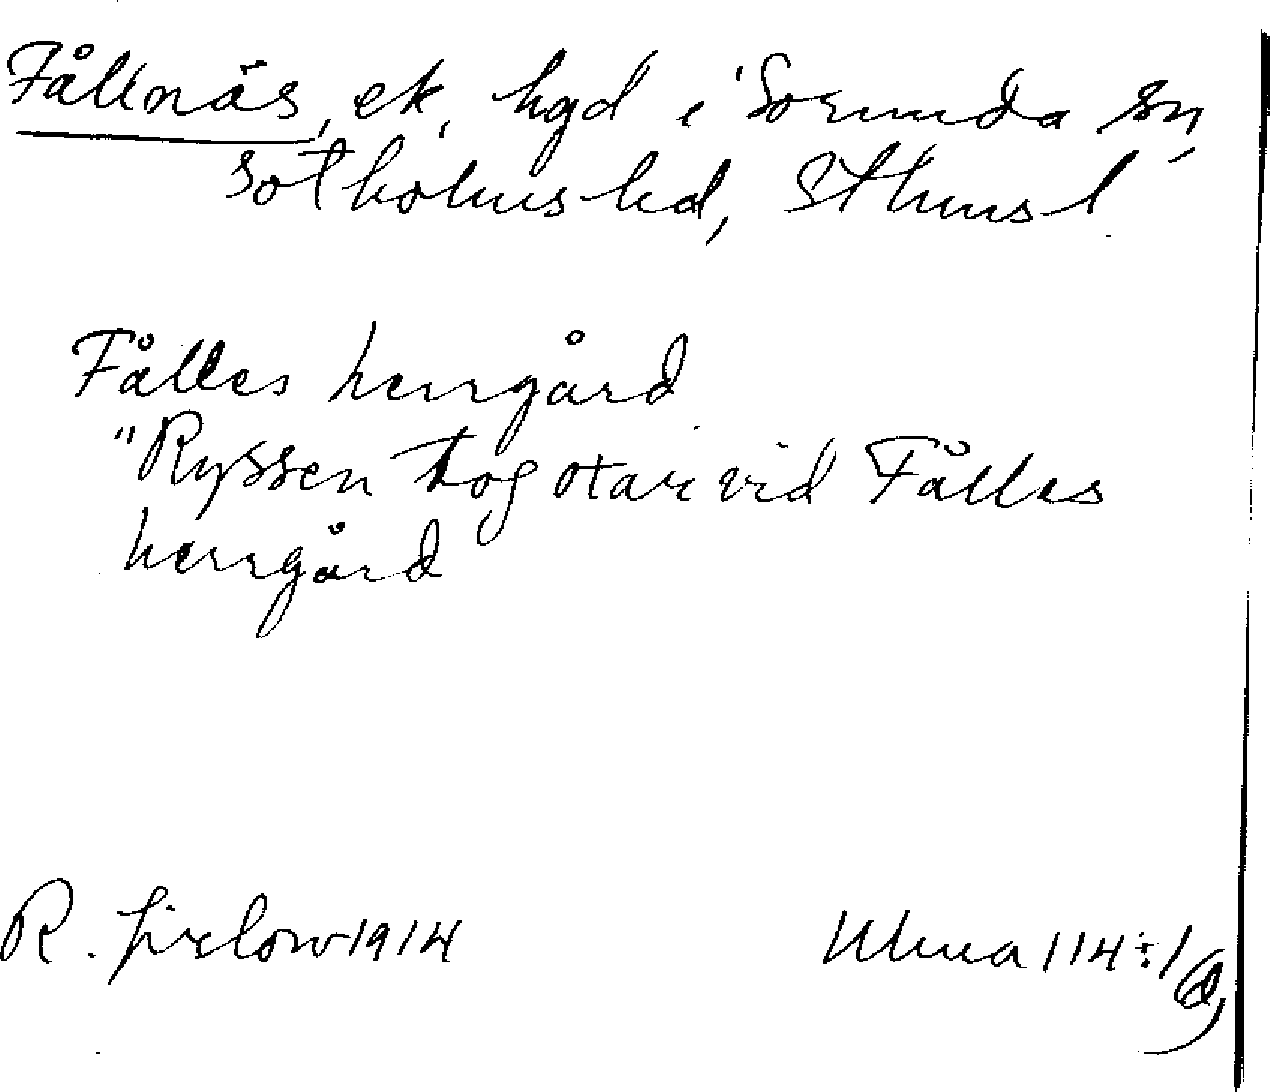 Fållnäs, ek, hgd i Sorunda sn,
Sotholms hd, Sthms l
Fålles herrgård
"Ryssen tog otar vid Fålles
herrgård
R. Jirlow 1914
Ulma 114:1